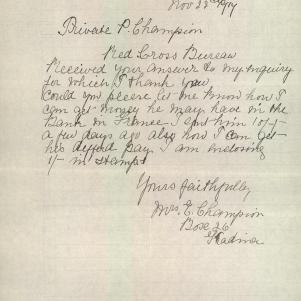 Nov 28th 1917
Private P. Champion
Red Cross Bureau
Received your answer to my enquiry
for which I thank you
Could you please let me know how I
can get money he may have in the
Bank in France I sent him 10/-/-
a few days ago also how I can get
his deffed pay I am enclosing
1/- in stamps
Yours faithfully
Mrs. E. Champion
Box 26
Kadina